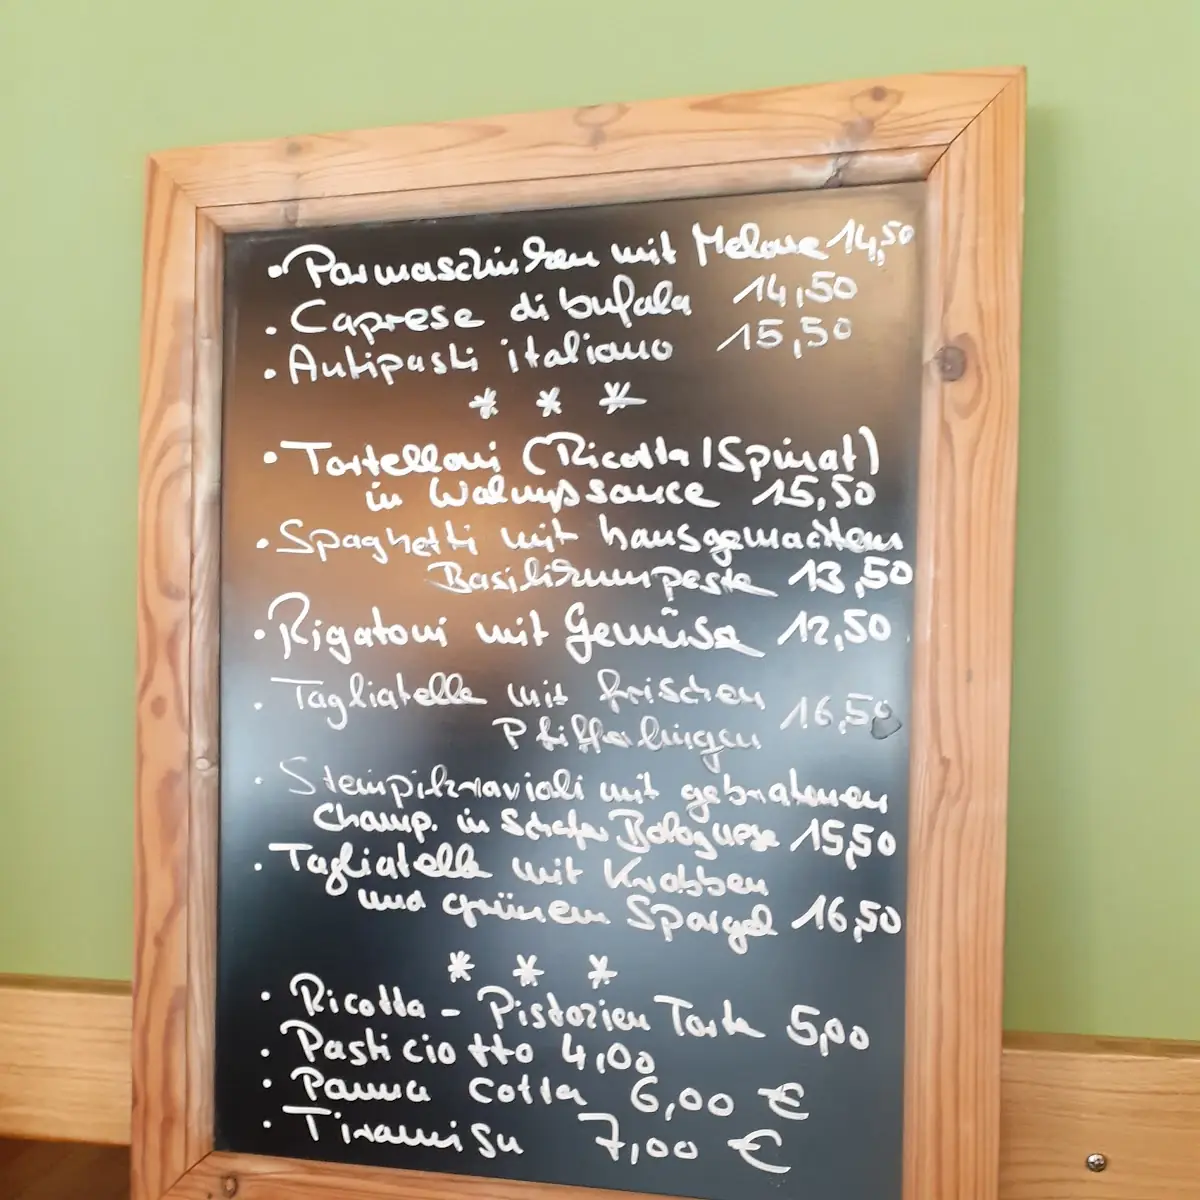 • Parmaschinken mit Melone 14,50
• Caprese di bufala 14,50
• Antipasti italiano 15,50
* * *
• Tortelloni (Ricotta/Spinat)
in Walnusssauce 15,50
• Spaghetti mit hausgemachtem
Basilikumpesto 13,50
• Rigatoni mit Gemüse 12,50
• Tagliatelle mit frischen
Pfifferlingen 16,50
• Steinpilzravioli mit gebratenen
Champ. in Scharfer Bolognese 15,50
• Tagliatelle mit Krabben
und grünem Spargel 16,50
* * *
• Ricotta - Pistazien Torte 5,00
• Pasticiotto 4,00
• Panna cotta 6,00 €
• Tiramisu 7,00 €